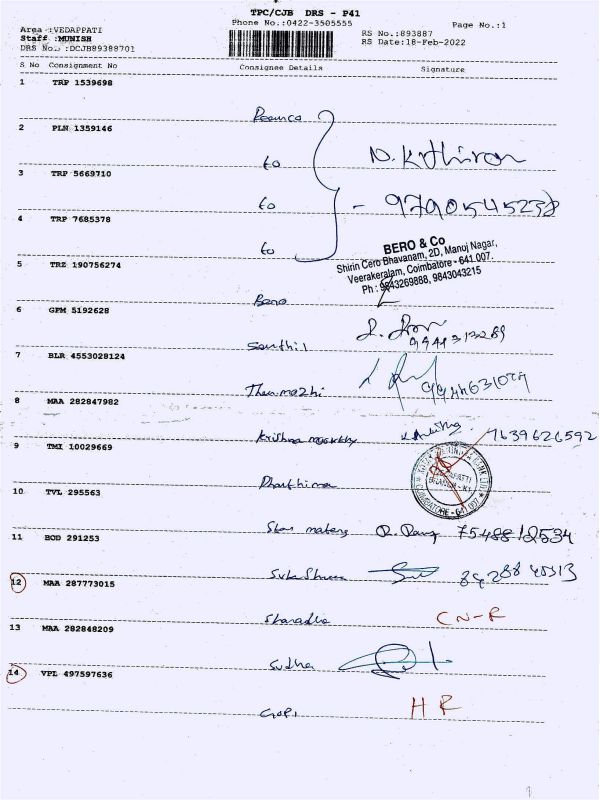 TPC/CJB DRS - P41
Phone No.:0422-3505555
Page No.:1
Area :VEDAPPATI
Staff :MUNISH
DRS No.: DCJB89388701
RS No.:893887
RS Date:18-Feb-2022
S No Consignment No Consignee Details Signature
1 TRP 1539698
Roomca
2 PLN 1359146
to N. Kathiron
3 TRP 5669710
to - 9790545238
4 TRP 7685378
to
BERO & Co
Shirin Cero Bhavanam, 2D, Manuj Nagar,
Veerakeralam, Coimbatore - 641 007.
Ph : 9843269888, 9843043215
5 TRZ 190756274
Bero
6 GPM 5192628
Senthil
7 BLR 4553028124
Thenmozhi
8 MAA 282847982
Krishna 7639626592
9 TMI 10029669
COIMBATORE - 641 007
10 TVL 295563
75488 12534
11 BOD 291253
12 MAA 287773015
Sharadha CN-R
13 MAA 282848209
Sudha
14 VPL 497597636
Gopi HR